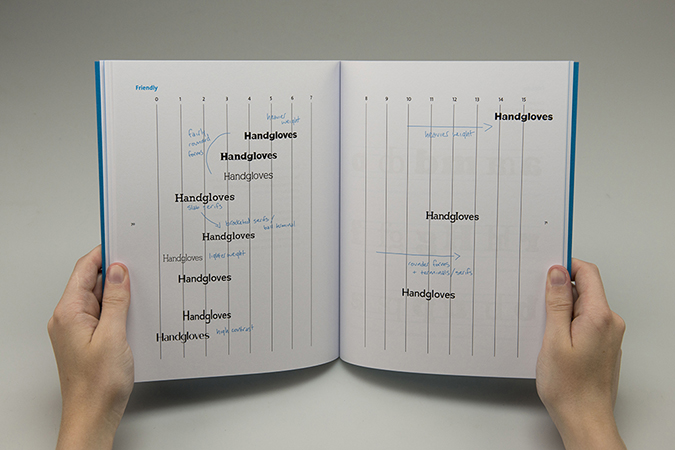 Friendly
0 1 2 3 4 5 6 7
heavier
weight
fairly
rounded
forms
Handgloves
Handgloves
Handgloves
Handgloves
slab serifs
bracketed serifs/
ball terminal
Handgloves
Handgloves
lighter weight
Handgloves
Handgloves
Handgloves
high contrast
8 9 10 11 12 13 14 15
Handgloves
heavier weight
Handgloves
rounder forms
+ terminals/serifs
Handgloves